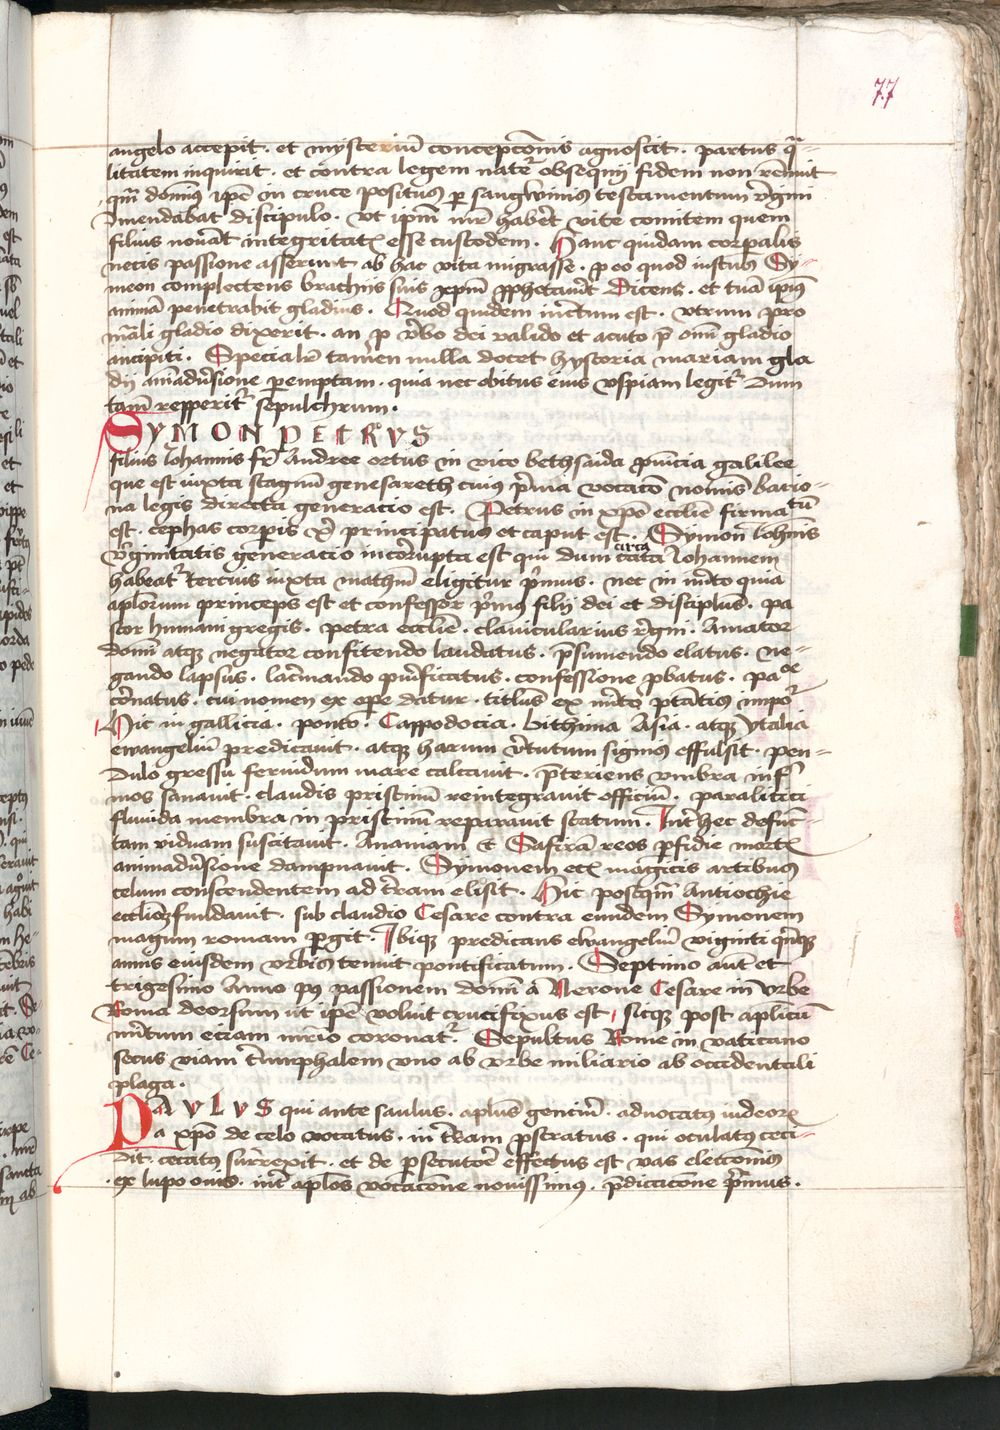 77
angelo accepit · et mysteriū concepcōnis agnoscit · partus q̄a=
litatem inquirit · et contra legem natur̄ obsequij fidem non rēnuit
qm̄ domīus ip̄e in cruce positus p̱ sangwinis testamentum v̄gini
ꝯmendabat discipulo · vt ip̄m mr̄ habēt vite comitem quem
filius novāt integritatꝭ esse custodem · Hanc quidam corꝑalis
necis passione asserunt ab hac vita migrasse · ꝓ eo quod iustus Sy=
meon complectens brachijs suis xp̄m ꝓphetavīt Dicens · et tuā ipiūs
animā penetrabit gladius · Quod quidem incītum est · vtrum ꝓ ro
māli gladio dixerit · an ꝓ v̄bo dei valido et acuto p̄ omī gladio
ancipiti · Specialit̄ tamen nulla docet hystoria mariam gla
dij aīadv̄sione ꝑemptam · quia nec obitus eius vspiam legitᷣ Dum
tam̄ repperitᷣ sepulchrum ·
SYMON PETRVS
filius Iohannis fr̄ Andree ortus in vico bethsaida ꝓvīcia galilee
que est iuxta stagnū genesareth cuius p̄ma vocatō nomīs bario=
na legis directa generacio est · Petrus in xp̄o ecclīe firmatū
est · cephas corꝑis xp̄i principatus et caput est · Symon Iohīnis
v̄ginitatis generatio incorrupta est qui dum circa Iohannem
habeatᷣ tercius iuxta mathm̄ eligitur p̄mus · nec in mr̄ito quia
aplorum princeps est et confessor p̄mus filij dei et disciplūs · pa
stor humani gregis · petra ecclīe · clavicularius rēgni · Amator
domī atqꝫ negator confitendo laudatus · p̄sumendo elatus · ne=
gando lapsus · lacr̄mando pur̄ficatus · confessione ꝓbatus · pa
coronatus · cui nomen ex oꝑe datur · titlus ex mr̄ito ptātis impōr
Hic in gallicia · ponto · Cappodocia · bithinia Asia · atqꝫ ytalia
ewangeliū predicauit · atqꝫ harum v̄tutum signis effulsit · pen=
dulo gressu feruidum mare calcauit · p̄teriens vmbra infr̄
mos sanauit · claudis pristinū reintegrauit officiū · paralitici
fluuida membra in pristinū reparauit statum · Int̄ hec defūc=
tam viduam suscitauit · Ananiam et Safirā reos ꝑfidie mortꝭ
animadv̄sione dampnauit · Symonem etꝭ magicis artibus
celum conscendentem ad t̄ram elisit · Hic postqm̄ Antiochie
ecclīaꝫ fundauit · sub claudio Cesare contra eundem Symonem
magum romam ꝑgit · Ibiqꝫ predicans ewangeliū viginti qn̄qꝫ
annis eiusdem vrbis tenuit pontificatum · Septimo aūt et
trigesimo Anno pꝰ passionem domī a Nerone Cesare in vrbe
Roma deorsum ut ip̄e voluit crucifixus est · sicqꝫ post aplicū
mr̄itum eciam mr̄io coronatᷣ · Sepultus Rome in vaticano
secus viam triumphalem vno ab vrbe miliario ab occidentali
plaga ·
PAVLVS qui ante saulus · aplūs genciū · aduocatus iudeorꝫ
a xp̄o de celo vocatus · in t̄ram ꝓstratus · qui oculatus ceci=
dit · cecatus surrexit · et de ꝑsecutōre effectus est vas eleccōnis
ex lupo ouis · int̄ aplos vocacōne nouissimus · p̄dicacione p̄mus ·